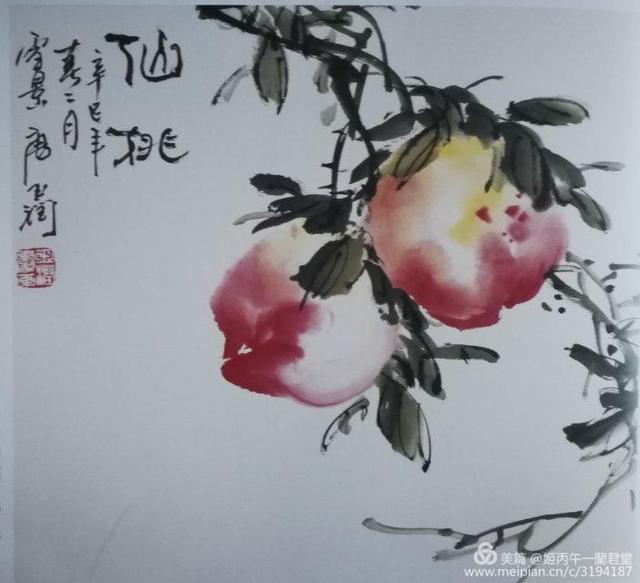 仙桃
辛巳年
春二月
景 唐玉潤
美篇 @姬丙午一蘭君堂
www.meipian.cn/c/3194187